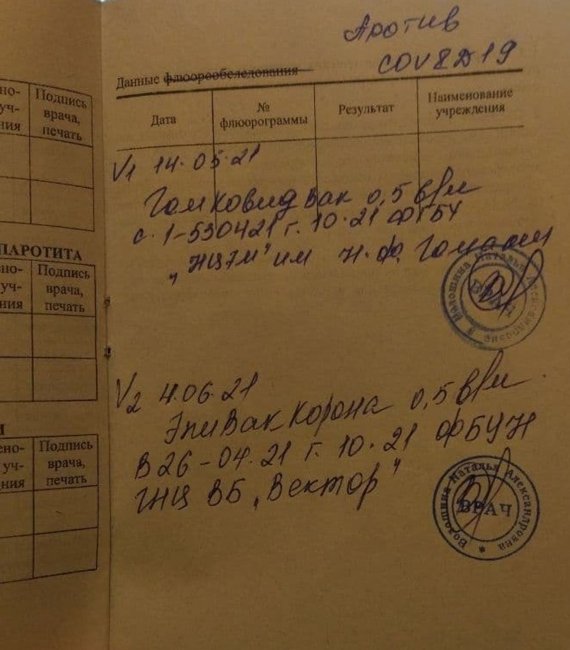 Против
COVID19
Данные флюорообследования
Дата
№
флюорограммы
Результат
Наименование
учреждения
V1 14.05.21
Гам Ковид Вак 0,5 в/м
с. 1-530421 г. 10.21 ФГБУ
"НЦЭМ" им Н.Ф. Гамалеи
V2 4.06.21
ЭпиВакКорона 0,5 в/м
В26-04.21 г. 10.21 ФБУН
ГНЦ ВБ "Вектор"
Волошина Наталья Александровна
ВРАЧ
Волошина Наталья Александровна
ВРАЧ
но-
уч-
ния
Подпись
врача,
печать
ПАРОТИТА
но-
уч-
ния
Подпись
врача,
печать
И
но-
уч-
ния
Подпись
врача,
печать